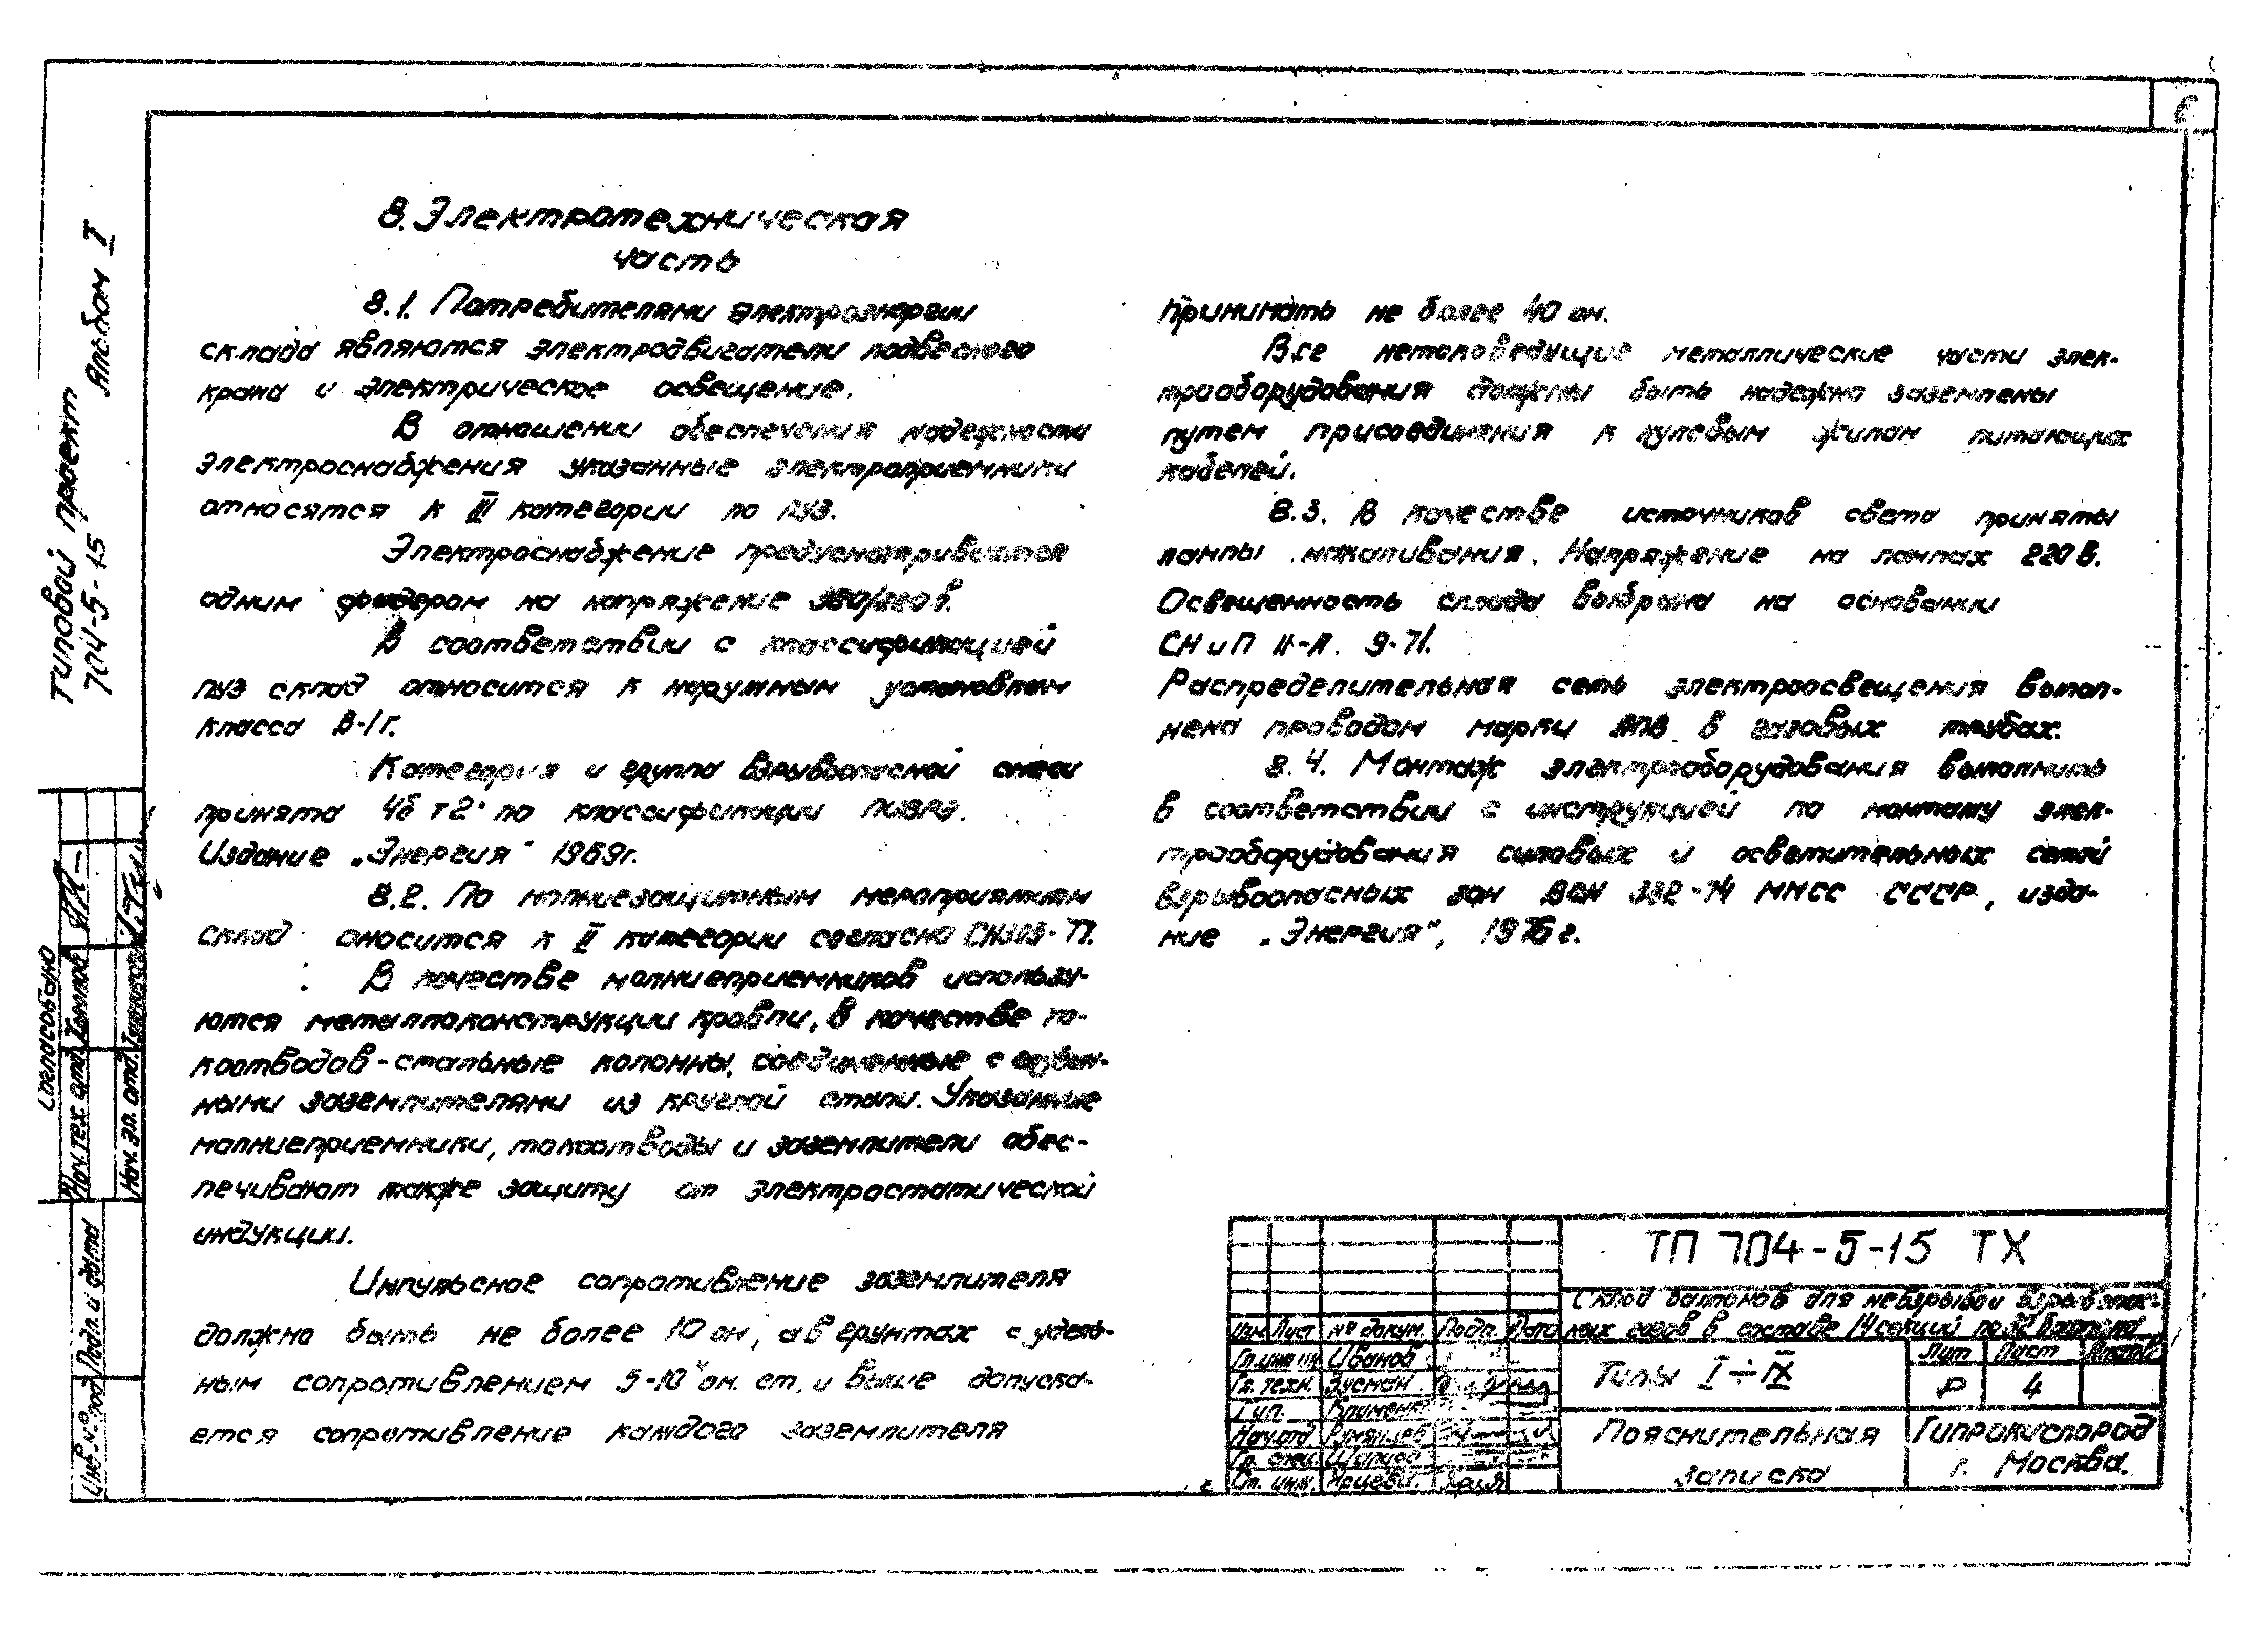 6
Типовой проект
704-5-15
Альбом I
8. Электротехническая
часть
8.1. Потребителями электроэнергии
склада являются электродвигатели подвесного
крана и электрическое освещение.
В отношении обеспечения надежности
электроснабжения указанные электроприемники
относятся к III категории по ПУЭ.
Электроснабжение предусматривается
одним фидером на напряжение 380/220 в.
В соответствии с классификацией
ПУЭ склад относится к наружным установкам
класса В-1г.
Категория и группа взрывоопасной смеси
принята 4б т2 по классификации ПИВРЭ.
Издание „Энергия" 1969г.
8.2. По молниезащитным мероприятиям
склад оносится к II категории согласно СН305-77.
В качестве молниеприемников использу-
ются металлоконструкции кровли, в качестве то-
коотводов - стальные колонны, соединенные с глубин-
ными заземлителями из круглой стали. Указанные
молниеприемники, токоотводы и заземлители обес-
печивают также защиту от электростатической
индукции.
Импульсное сопротивление заземлителя
должно быть не более 10 ом, а в грунтах с удель-
ным сопротивлением 5·10⁴ ом. см. и выше допуска-
ется сопротивление каждого заземлителя
принимать не более 40 ом.
Все нетоковедущие металлические части элек-
трооборудования должны быть надежно заземлены
путем присоединения к нулевым жилам питающих
кабелей.
8.3. В качестве источников света приняты
лампы накаливания. Напряжение на лампах 220 в.
Освещенность склада выбрана на основании
СНиП II-А. 9-71.
Распределительная сеть электроосвещения выпол-
нена проводом марки в газовых трубах.
8.4. Монтаж электрооборудования выполнить
в соответствии с инструкцией по монтажу элек-
трооборудования силовых и осветительных сетей
взрывоопасных зон ВСН 332-74 ММСС СССР, изда-
ние „Энергия", 1976г.
Согласовано
Нач. тех. отд.
Нач. эл. отд.
Подп. и дата
Инв № под
ТП 704-5-15 ТХ
Склад баллонов для невзрывоопас-
ных газов в составе 14 секций по 32 баллона
Изм Лист № докум. Подп. Дата
Гл. инж. ин Иванов
Гл. техн. Зусман
Гип. Клименко
Нач. отд Румянцев
Гл. спец. Шапиро
Ст. инж. Ярцева
Типы I÷IX
Лит Лист Листов
Р 4
Пояснительная
записка
Гипрокислород
г. Москва.